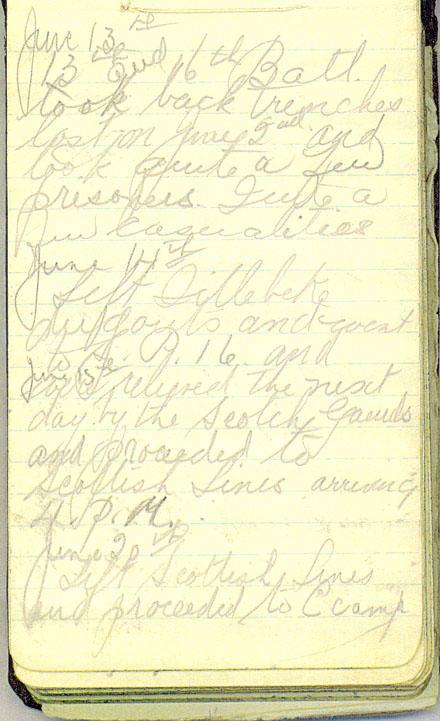 June 13th
13th and 16th Batl.
took back trenches
lost on June 2nd and
took quite a few
prisoners. Quite a
few Casualities
June 14th
Left Zillebeke
dugouts and went
P. 16 and
June 15th
relieved the next
day by the Scotch Gaurds
and proceeded to
Scottish Lines arriving
4 P.M.
June 20th
Left Scottish Lines
and proceeded to C camp